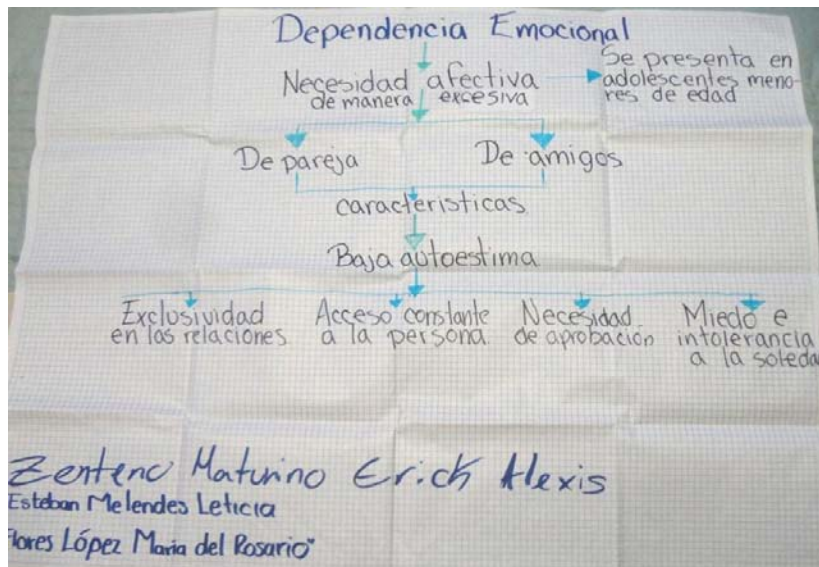 Dependencia Emocional
Necesidad afectiva
de manera excesiva
Se presenta en
adolescentes meno-
res de edad
De pareja
De amigos
caracteristicas
Baja autoestima
Exclusividad
en las relaciones
Acceso constante
a la persona
Necesidad
de aprobación
Miedo e
intolerancia
a la soleda
Zenteno Maturino Erick Alexis
Esteban Melendes Leticia
Flores López Maria del Rosario